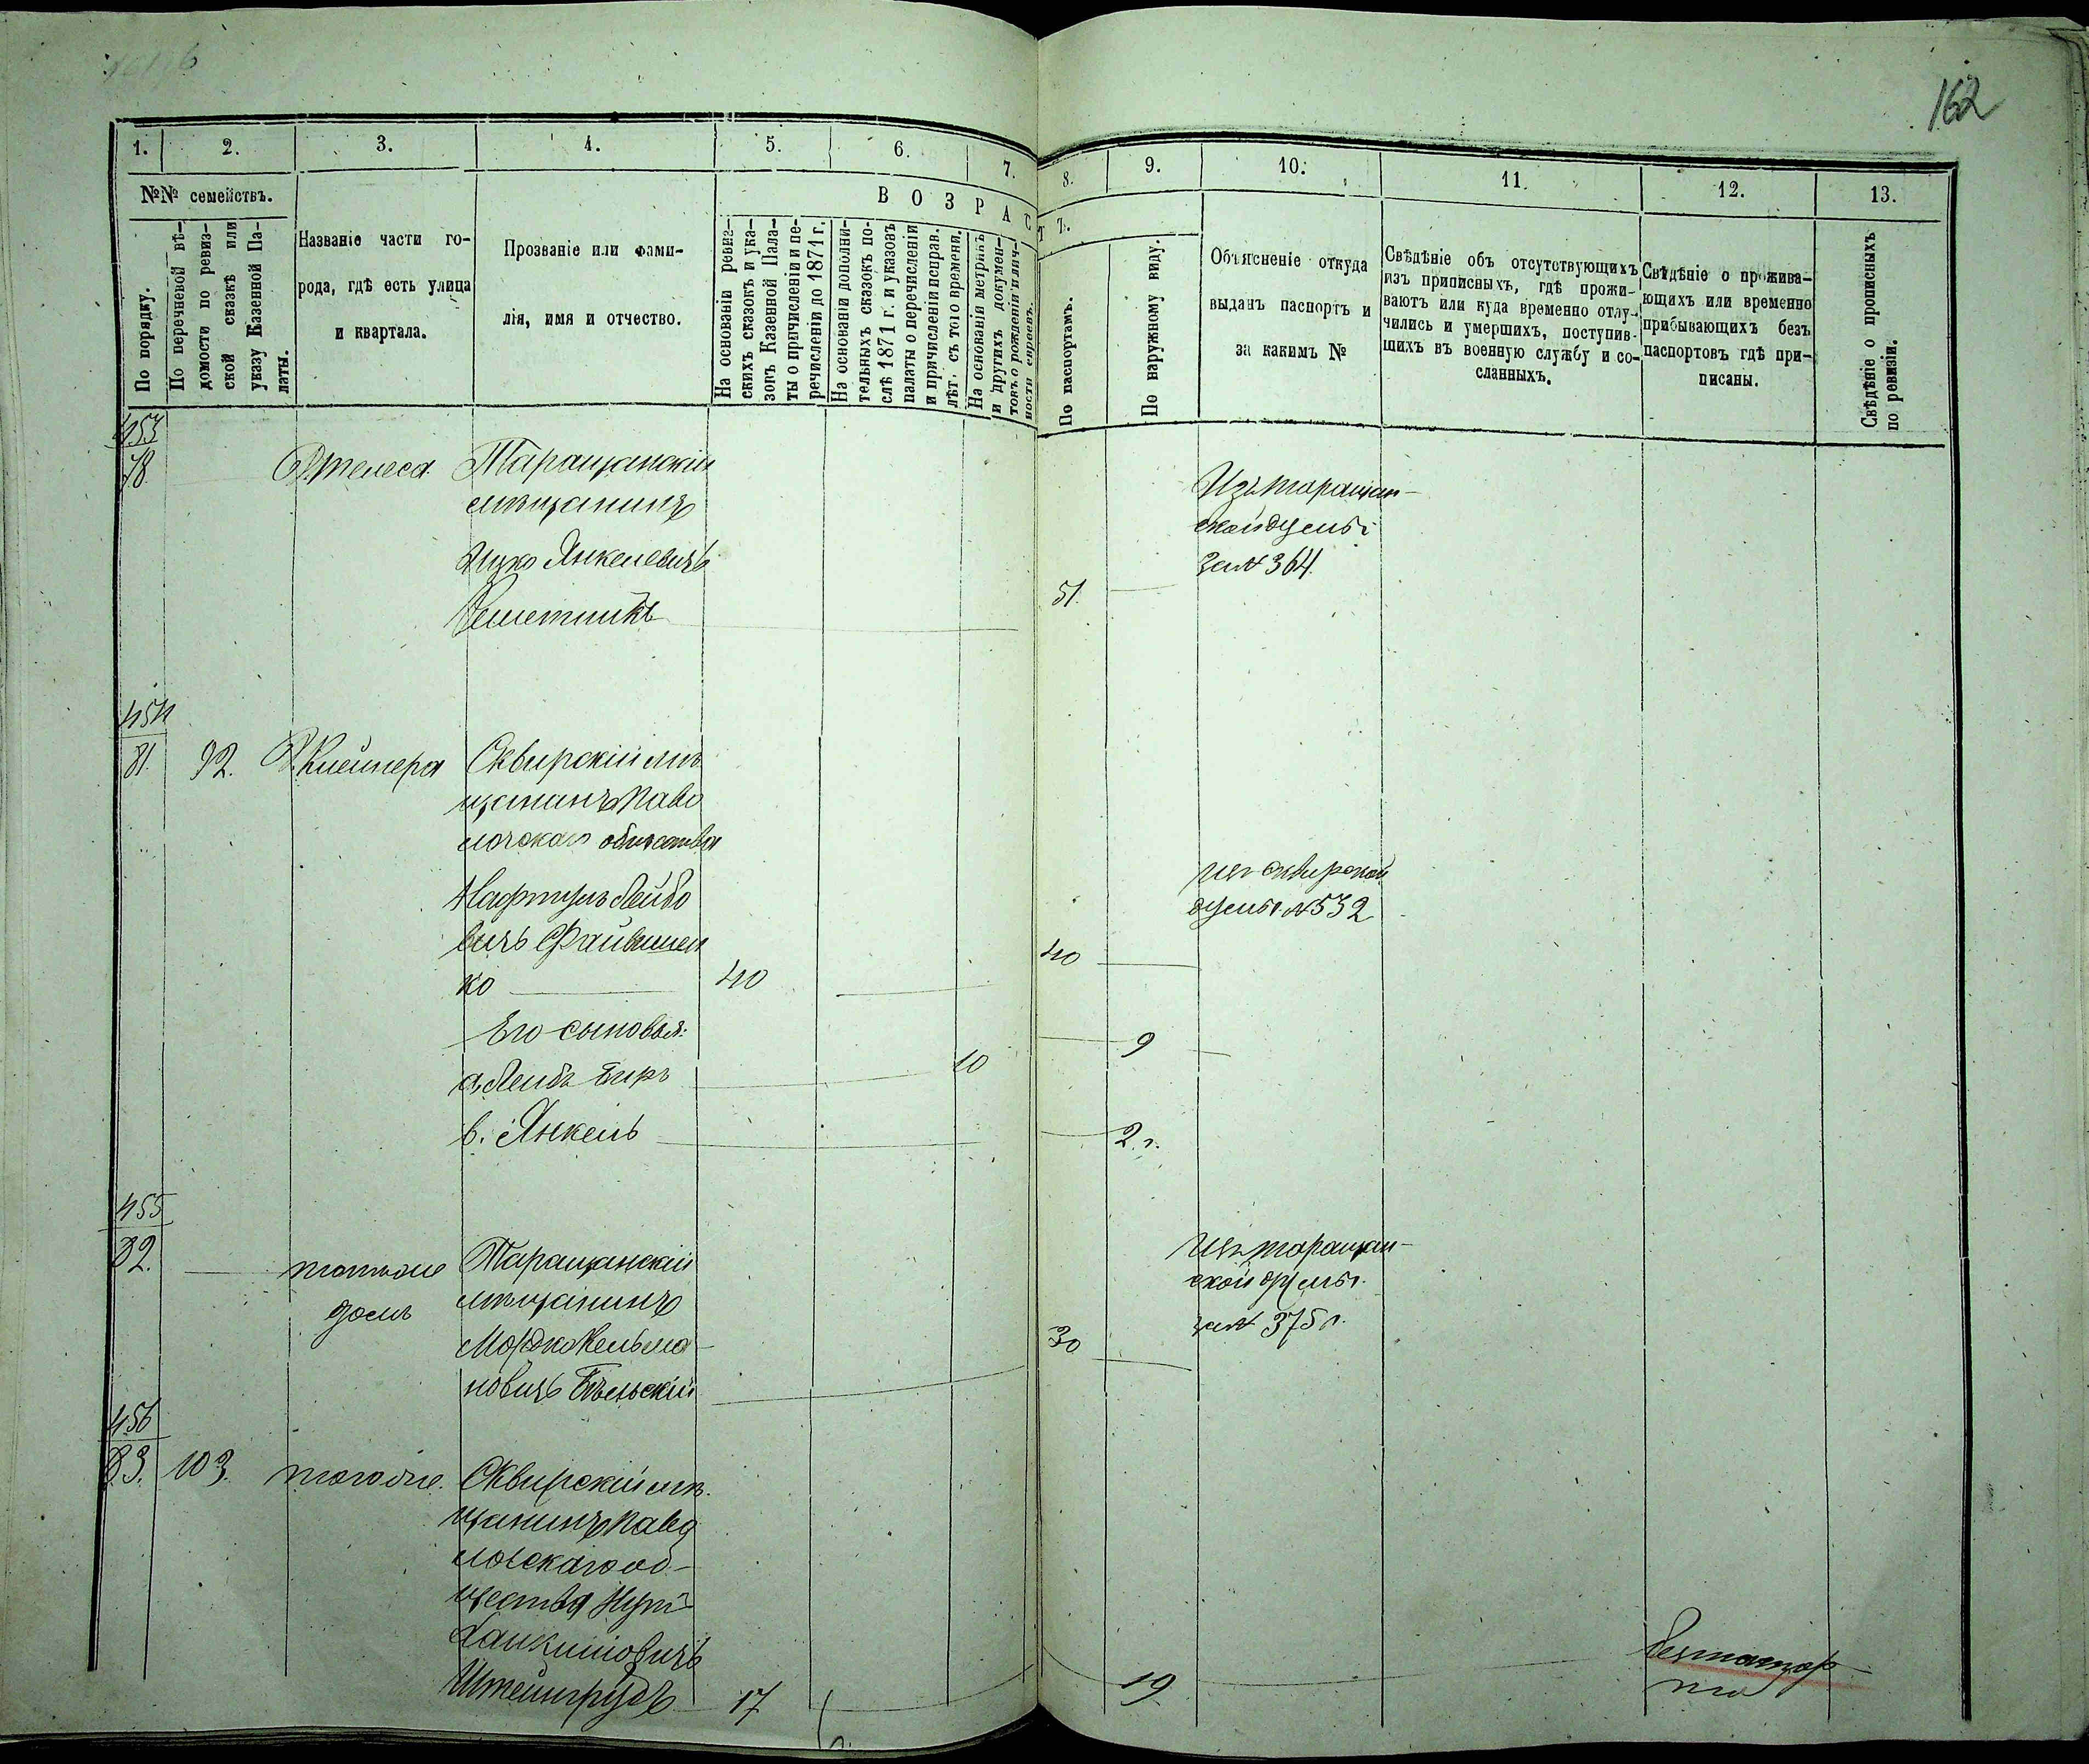 162
1. 2. 3. 4. 5. 6. 7. 8. 9. 10. 11. 12. 13.
№№ семействъ.
ВОЗРАСТЪ.
По порядку.
По перечневой вѣ-
домости по ревиз-
ской сказкѣ или
указу Казенной Па-
латы.
Названіе части го-
рода, гдѣ есть улица
и квартала.
Прозваніе или фами-
лія, имя и отчество.
На основаніи ревиз-
скихъ сказокъ и ука-
зовъ Казенной Пала-
ты о причисленіи и пе-
речисленіи до 1871 г.
На основаніи дополни-
тельныхъ сказокъ по-
слѣ 1871 г. и указовъ
палаты о перечисленіи
и причисленіи исправ.
лѣт. съ того времени.
На основаніи метрикъ
и другихъ докумен-
товъ о рожденіи и лич-
ности евреевъ.
По паспортамъ.
По наружному виду.
Объясненіе откуда
выданъ паспортъ и
за какимъ №
Свѣдѣніе объ отсутствующихъ
изъ приписныхъ, гдѣ прожи-
ваютъ или куда временно отлу-
чились и умершихъ, поступив-
шихъ въ военную службу и со-
сланныхъ.
Свѣдѣніе о прожива-
ющихъ или временно
прибывающихъ безъ
паспортовъ гдѣ при-
писаны.
Свѣдѣніе о прописныхъ
по ревизіи.
453
78
Таращанскій
мѣщанинъ
Ицко Янкелевичъ
Решетникъ
51.
Изъ таращан-
ской думы
за № 364.
454
81. 92. Д. Клейнера
Сквирскій мѣ
щанинъ Паво
лочскаго общества
Нафтулъ Лейбо
вичъ Файвишен
ко 40
40
изъ сквирской
думы № 532
Его сыновья:
а, Лейбъ Беръ 10 9
в. Янкель 2 г.
455
82. томъ же
домъ
Таращанскій
мѣщанинъ
Мордко Кельма-
новичъ Бѣльскій
30
Изъ таращан-
ской думы
за № 375
456
83. 103. того же.
Сквирскій мѣ
щанинъ Паво
лочскаго об-
щества
Штейнгрудъ 17
19.
без паспор
та